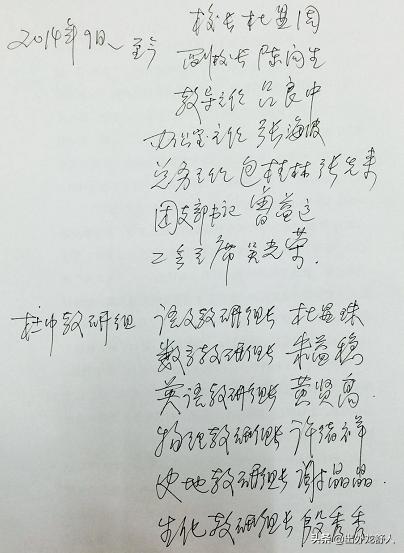 2014年9日至今 校长 杜显周
副校长 陈同生
教导主任 吕良中
办公室主任 张海波
总务主任 包桂林 张先来
团支部书记 曾益
工会主席 吴光荣.
杜中教研组 语文教研组长 杜显珠
数学教研组长 朱益稳
英语教研组长 黄贤高.
物理教研组长 许绪祥
史地教研组长 谢晶晶.
生化教研组长 段秀秀
头条@出外龙舒人